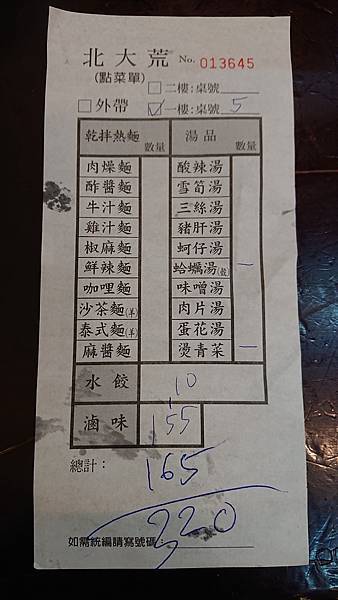 北大荒 No. 013645
(點菜單)
□二樓:桌號
□外帶 ☑一樓:桌號 5
乾拌熱麵 數量 湯品 數量
肉燥麵 酸辣湯
酢醬麵 雪筍湯
牛汁麵 三絲湯
雞汁麵 豬肝湯
椒麻麵 蚵仔湯
鮮辣麵 蛤蠣湯 一
咖哩麵 味噌湯
沙茶麵(羊) 肉片湯
泰式麵(羊) 蛋花湯
麻醬麵 燙青菜 一
水餃 10
滷味 155
總計: 165
220
如需統編請寫號碼: